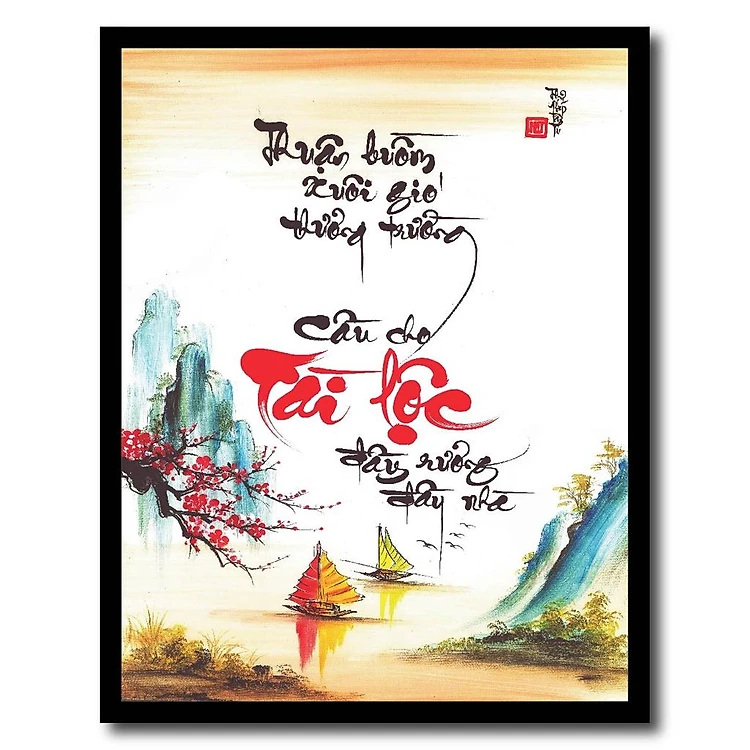 Thuận buồm
xuôi gió
thương trường
Cầu cho
Tài lộc
đầy rương
đầy nhà